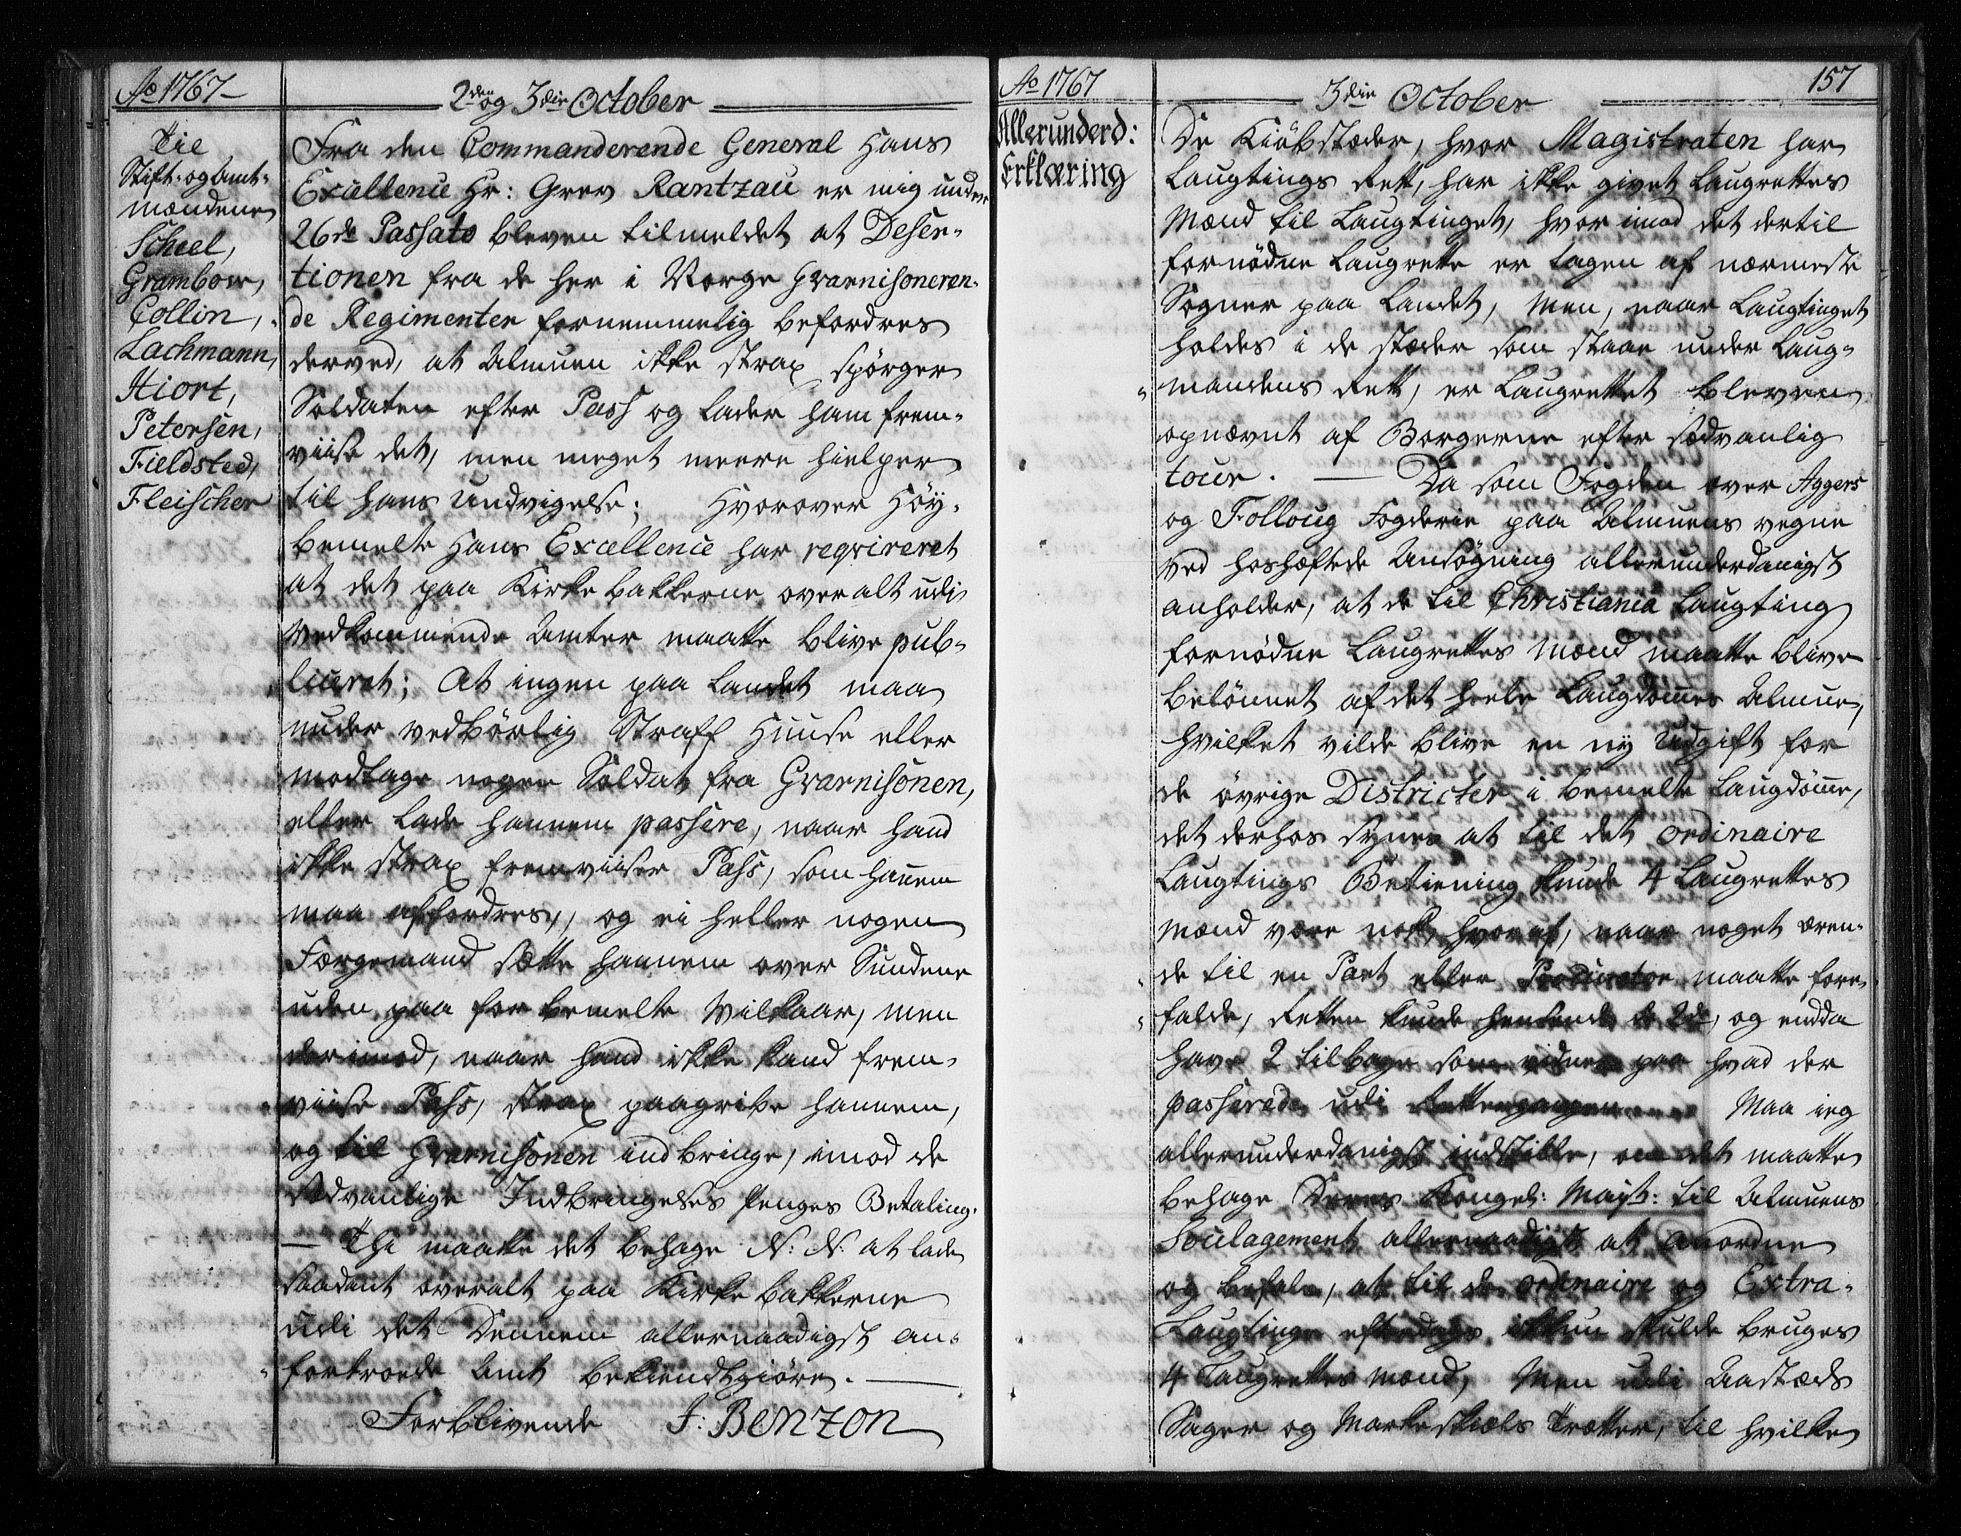 Ao 1767
2den og 3die October
Til
Stift- og Amt-
mændene
Scheel,
Grambow,
Collin,
Lachmann,
Hiort,
Petersen,
Fieldsted,
Fleischer
Fra den Commanderende General Hans
Excellence Hr: Grev Rantzau er mig under
26de Passato bleven tilmeldet at Deser-
tionen fra de her i Norge Gvarnisoneren-
de Regimenter fornemmelig befordres
derved, at Almuen ikke strax spörger
Soldaten efter Pass og lader ham frem-
viise det, men meget meere hielper
til hans Undvigelse; Hvorover Höy-
bemelte Hans Excellence har reqvireret
at det paa Kirkebakkerne overalt udi
Vedkommende Amter maatte blive pub-
liceret; At ingen paa Landet maa
under vedbörlig Straff Huuse eller
modtage nogen Soldat fra Gvarnisonen,
eller lade hannem passere, naar hand
ikke strax fremviiser Pass, som hanem
maa affordres, og ei heller nogen
Færgemand sætte hannem over Sundene
uden paa forbemelte Vilkaar, men
derimod, naar hand ikke kand frem-
viise Pass, strax paagribe hannem,
og til Gvarnisonen indbringe, imod de
sædvanlige Indbringelses Penges Betaling.
— Thi maatte det behage N: N: at lade
saadant overalt paa Kirkebakkerne
udi det Dennem allernaadigst an-
fortroede Amt bekiendtgiöre. —
Forblivende J: Benzon
Ao 1767
3die October
157
Allerunderd:
Erklæring
De Kiöbstæder, hvor Magistraten har
Laugtings Rett, har ikke givet Laugrettes
Mænd til Laugtinget, hvorimod det dertil
fornödne Laugrette er tagen af nærmeste
Sogner paa Landet, Men, naar Laugtinget
holdes i de stæder som staar under Laug-
mandens Rett, er Laugrettet bleven
opnævnt af Borgerne efter sædvanlig
tour. — Da som Fogden over Aggers
og Folloug Fogderie paa Almuens vegne
ved hoshæftede Ansögning allerunderdanigst
anholder, at de til Christiania Laugting
fornödne Laugrettes Mænd maatte blive
belönnet af det heele Laugdömes Almue,
hvilket vilde blive en ny Udgift for
de övrige Districter i bemelte Laugdöme,
det derhos synes at til det ordinaire
Laugtings Betiening kunde 4 Laugrettes
Mænd være nok, hvoraf, naar noget æren-
de til en Part eller Procurator maatte fore-
falde, Retten kunde hensende de 2de, og endda
have 2 tilbage som vidner paa hvad der
passerede udi Rettergangen Maa ieg
allerunderdanigst indstille, om det maatte
behage Deres Kongel: Mayt: til Almuens
Soulagement allernaadigst at anordne
og befale, at til de ordinaire og Extra-
Laugtinge efterdags ikkun skulde bruges
4 Laugrettes Mænd, Men udi Aastæds
Sager og Markeskiels Trætter, til hvilke